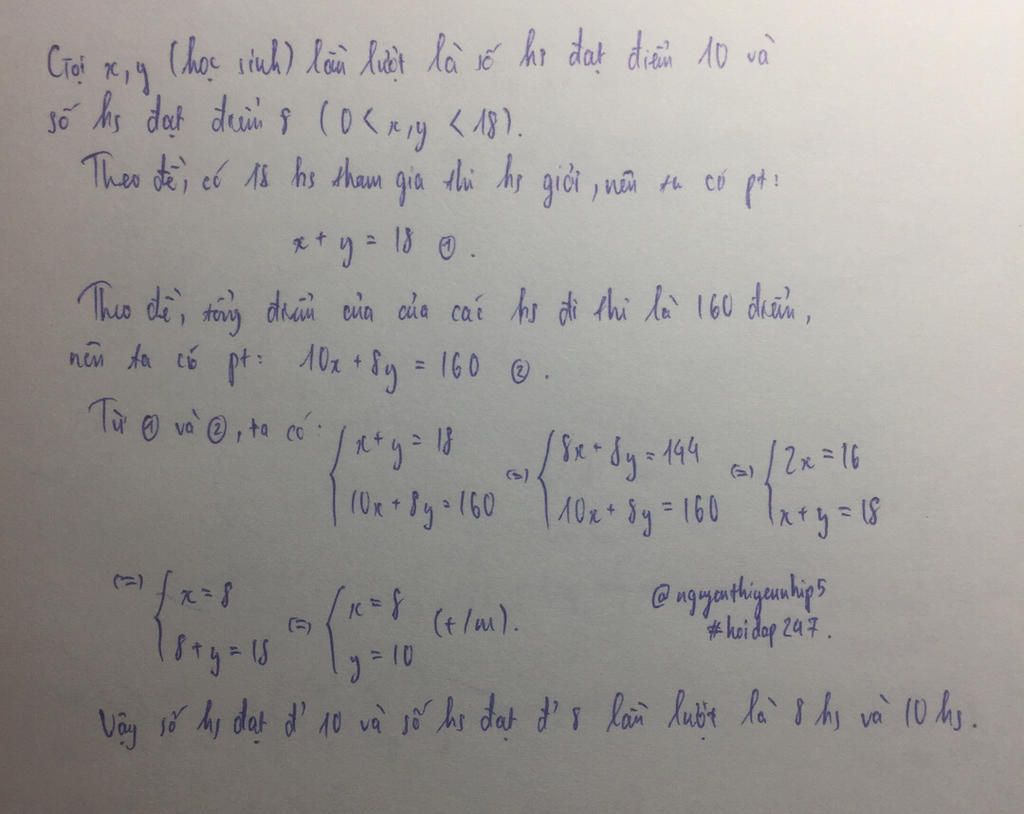 Gọi x, y (học sinh) lần lượt là số hs đạt điểm 10 và
số hs đạt điểm 8 (0 < x, y < 18).
Theo đề, có 18 hs tham gia thi hs giỏi, nên ta có pt:
x + y = 18 ①.
Theo đề, tổng điểm của của các hs đi thi là 160 điểm,
nên ta có pt: 10x + 8y = 160 ②.
Từ ① và ②, ta có: { x + y = 18 (=) { 8x + 8y = 144 (=) { 2x = 16
10x + 8y = 160 10x + 8y = 160 x + y = 18
(=) { x = 8 (=) { x = 8 (t/m).
8 + y = 18 y = 10
@nguyenthiyennhip5
#hoidap247.
Vậy số hs đạt đ' 10 và số hs đạt đ' 8 lần lượt là 8 hs và 10 hs.